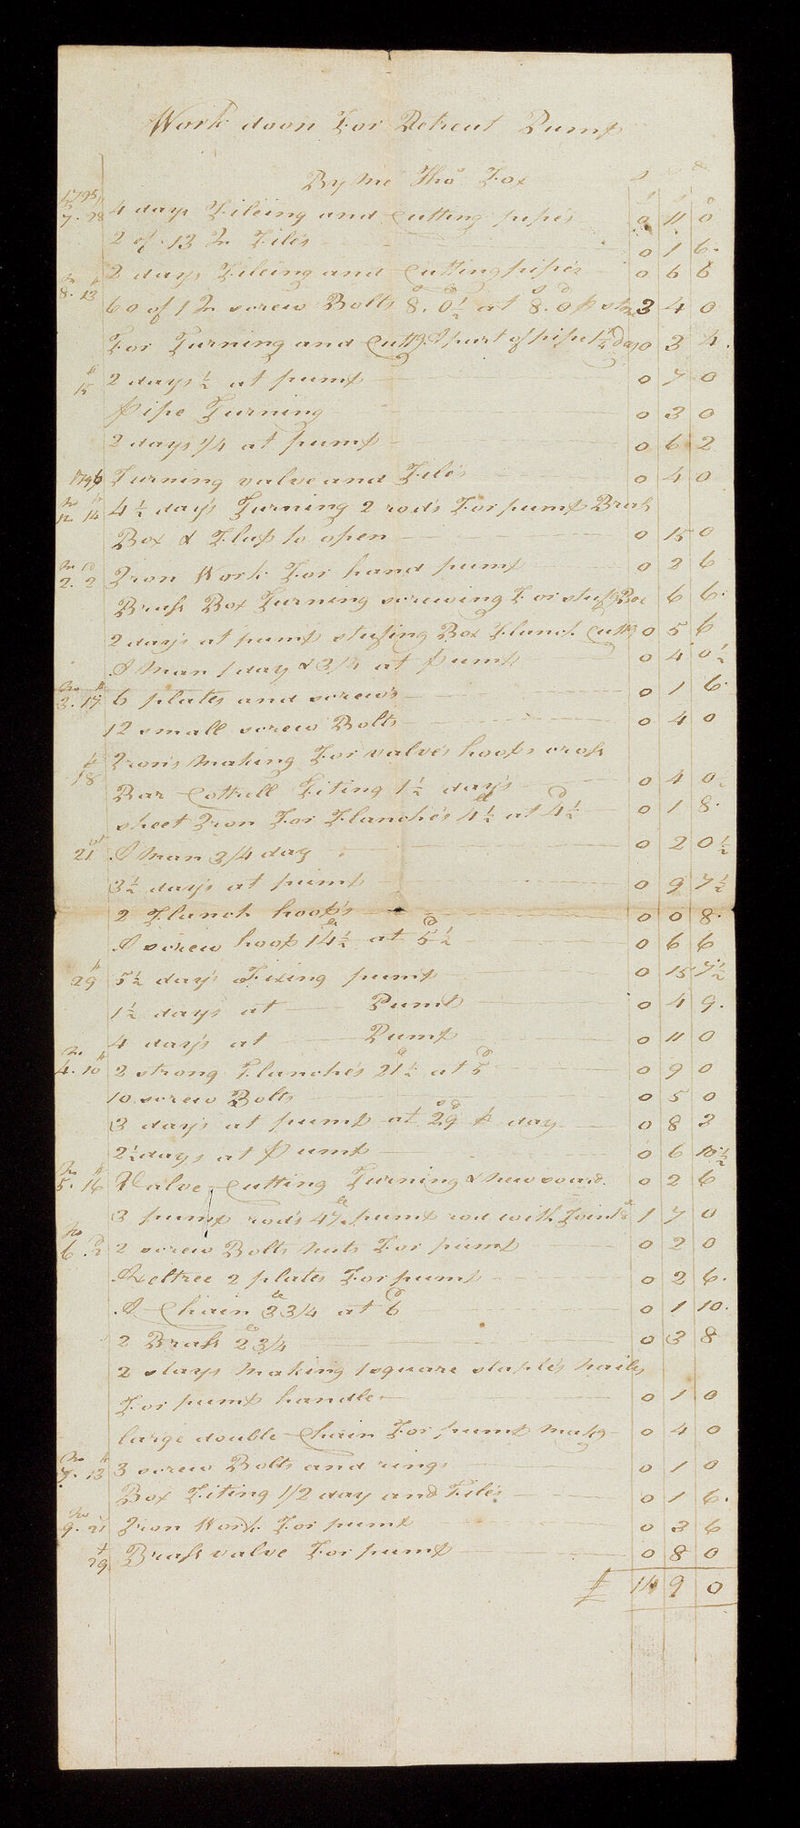 Work doon For Retreat Pump
By me Thos Fox
1795
7. 28 4 days Fileing and Cutting pipes 0 11 0
2 of 13 In Files 0 1 6
2 days Fileing and Cutting pipes 0 6 6
mo
8. 13 60 of 1 In screw Bolts 8. 0½ at 8. 0 3 4 0
For Turning and Cuttg. A part of pipe 1¼ day 0 3 4
15 2 days ½ at pump 0 7 0
Pipe Turning 0 3 0
2 days 1/4 at pump 0 6 2
1796 Turning valve and Files 0 4 0
mo
12 14 4½ days Turning 2 rods For pump Brass
Box & Flap to open 0 15 0
mo
2. 2 Iron Work For hand pump 0 2 6
Brass Box Turning screwing For stuffg Box 6 6
2 days at pump stufing Box Flanch Cuttg 0 5 6
A Man 1 day & 3/4 at pump 0 4 0½
mo
3. 17 6 plates and screws 0 1 6
12 small screw Bolts 0 4 0
18 Irons making For valves hoops cross
Bar Cottrell Fiting 1½ days 0 4 0
sheet Iron For Flanches 4½ at 4½ 0 1 8
21 A Man 3/4 day 0 2 0½
3½ days at pump 0 9 7½
2 Flanch hoops 0 0 8
A screw hoop 14½ at 5½ 0 6 6
29 5½ days Fixing pump 0 15 7½
1½ days at Pump 0 4 9
4 days at Pump 0 11 0
mo
4. 10 2 strong Flanches 21½ at 5 0 9 0
10 screw Bolts 0 5 0
3 days at pump at 2s 9d P day 0 8 3
2½ days at Pump 0 6 10½
mo
5. 16 Valve Cutting Turning & new 0 2 6
3 pump rods 47 pump rod with Joints 1 7 0
mo
6. 2 2 screw Bolts nuts For pump 0 2 0
Axeltree 2 plates For pump 0 2 6
A Chain 3 3/4 at 6 0 1 10
2 Brass 2 3/4 0 3 8
2 stays making 1 square staples nailes
For pump handle 0 1 0
large double Chain For pump makg 0 4 0
mo
7. 13 3 screw Bolts and rings 0 1 0
Box Fiting 1/2 day and Files 0 1 6
mo
9. 21 Iron Work For pump 0 3 6
29 Brass valve For pump 0 8 0
£ 14 9 0